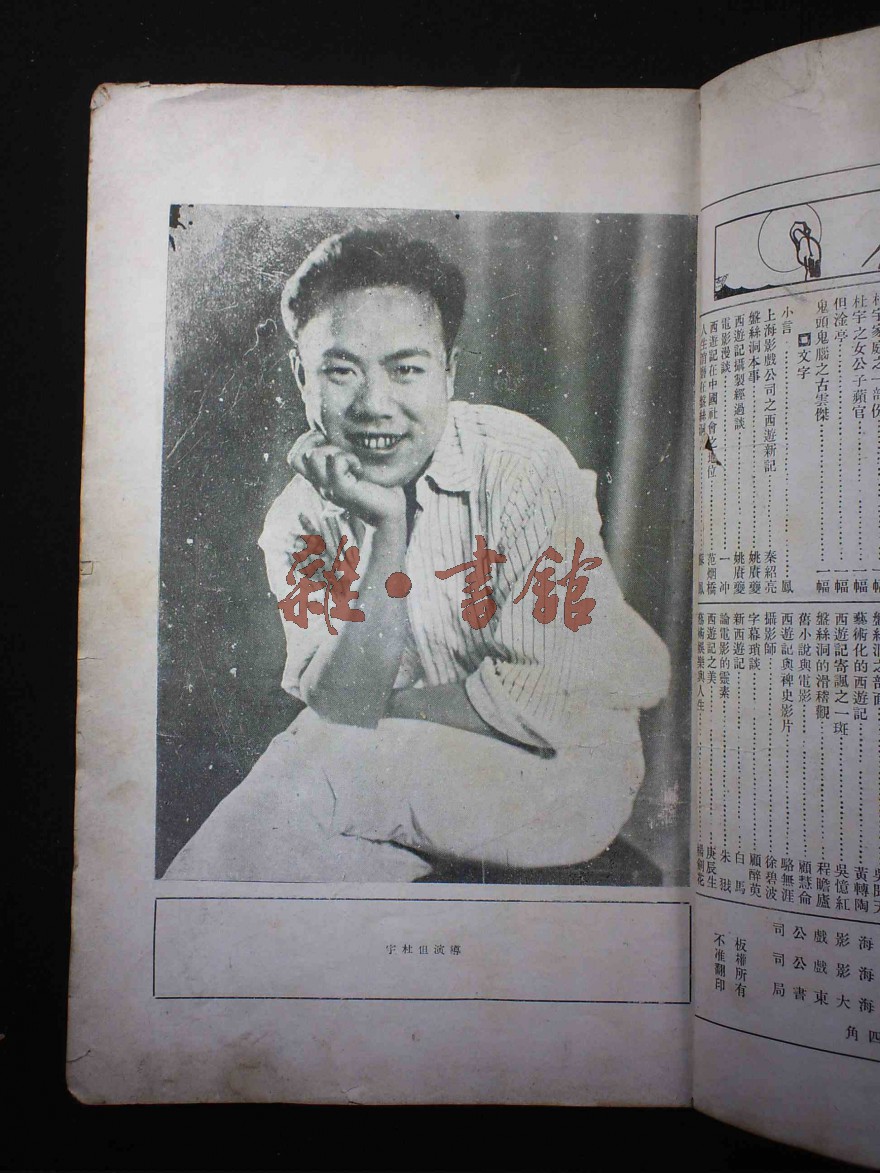 雜·書館
導演但杜宇
宇家庭之一部份
杜宇之女公子蘋官……一幅
但淦亭……一幅
鬼頭鬼腦之古雲傑……一幅
文字
小言……鳳
上海影戲公司之西遊新記……秦紹亮
盤絲洞本事……姚賡夔
西遊記攝製經過談……姚賡夔
電影漫談……一冲
西遊記在中國社會之地位……范烟橋
盤絲洞之部面
藝術化的西遊記……黃轉陶
西遊記寄諷之一斑……吳憶紅
盤絲洞的滑稽觀……程瞻廬
舊小說與電影……顧慧侖
西遊記與稗史影片……駱無涯
攝影師……徐碧波
字幕瑣談……顧醉英
新西遊記……白馬
論電影的靈素……朱戢
西遊記之美……庚辰生
藝術娛樂與人生
海海海
影影大
戲戲東
公公書
司司局
四角
板權所有
不准翻印